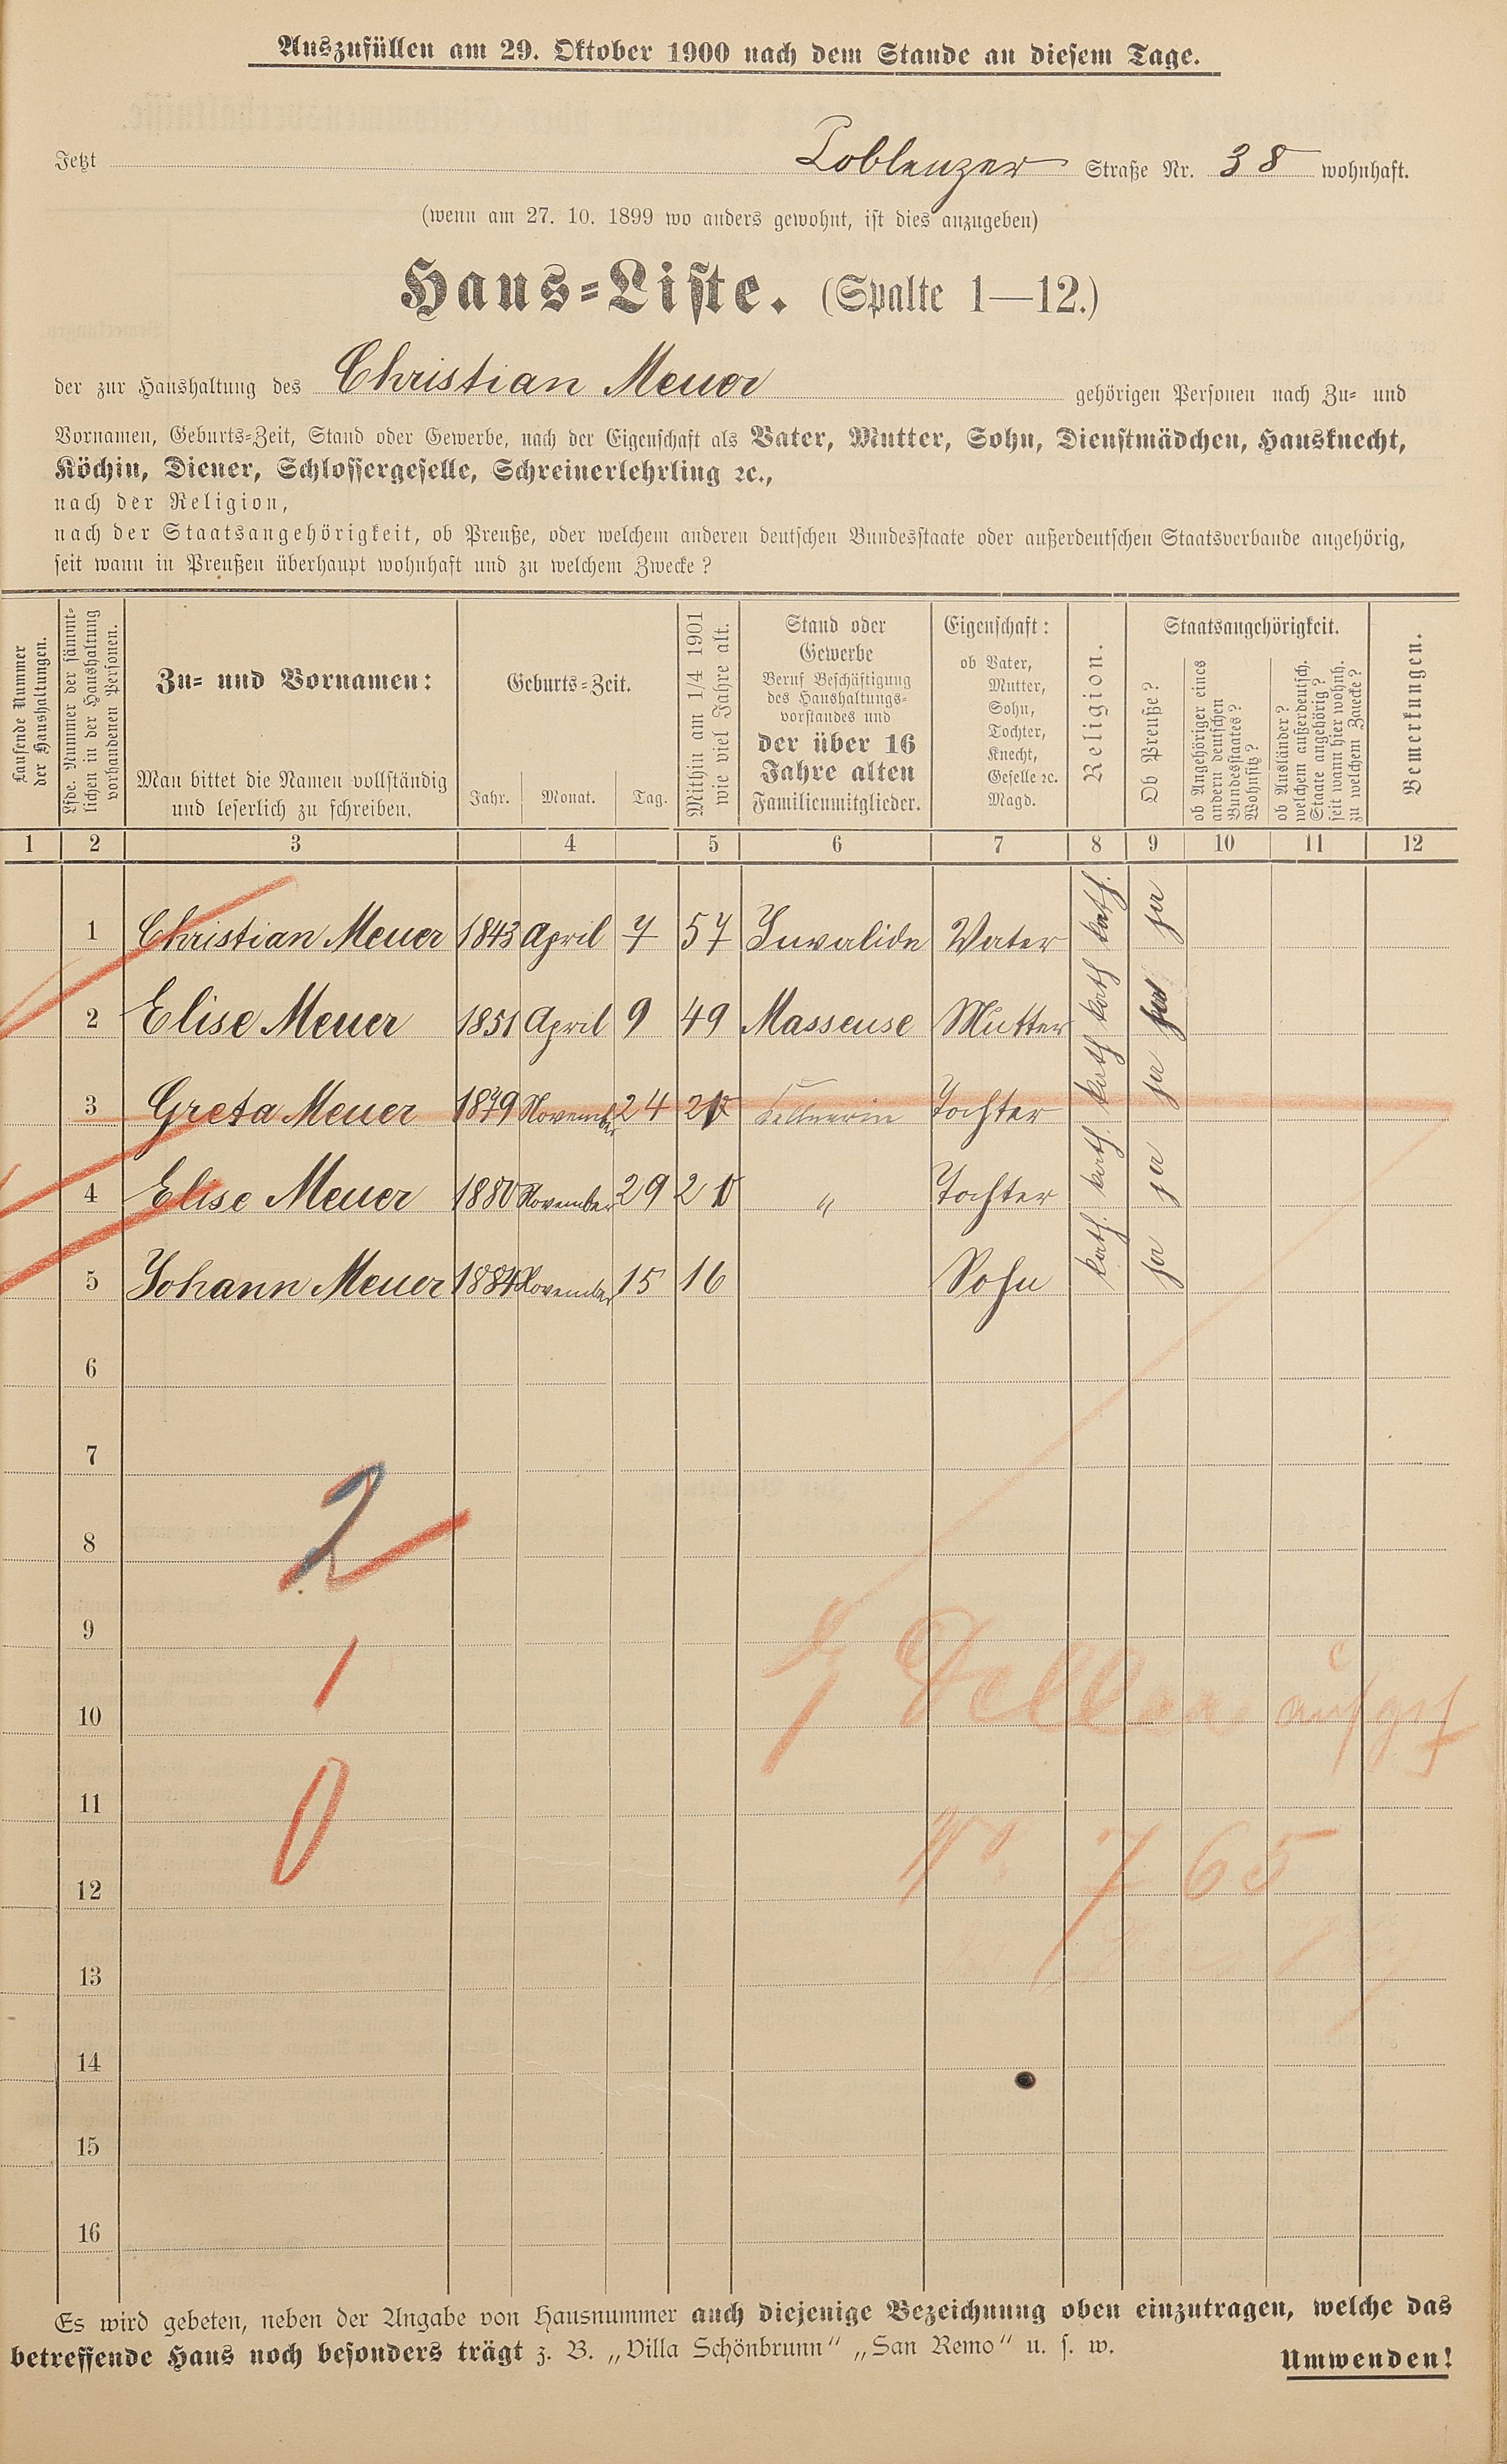 Auszufüllen am 29. Oktober 1900 nach dem Stande an diesem Tage.
Jetzt Coblenzer Straße Nr. 38 wohnhaft.
(wenn am 27. 10. 1899 wo anders gewohnt, ist dies anzugeben)
Haus-Liste. (Spalte 1—12.)
der zur Haushaltung des Christian Meuer gehörigen Personen nach Zu- und
Vornamen, Geburts-Zeit, Stand oder Gewerbe, nach der Eigenschaft als Vater, Mutter, Sohn, Dienstmädchen, Hausknecht,
Köchin, Diener, Schlossergeselle, Schreinerlehrling ꝛc.,
nach der Religion,
nach der Staatsangehörigkeit, ob Preuße, oder welchem anderen deutschen Bundesstaate oder außerdeutschen Staatsverbande angehörig,
seit wann in Preußen überhaupt wohnhaft und zu welchem Zwecke?
Laufende Nummer
der Haushaltungen.
Lfde. Nummer der sämmt-
lichen in der Haushaltung
vorhandenen Personen.
Zu- und Vornamen:
Man bittet die Namen vollständig
und leserlich zu schreiben.
Geburts-Zeit.
Jahr. Monat. Tag.
Mithin am 1/4 1901
wie viel Jahre alt.
Stand oder
Gewerbe
Beruf Beschäftigung
des Haushaltungs-
vorstandes und
der über 16
Jahre alten
Familienmitglieder.
Eigenschaft:
ob Vater,
Mutter,
Sohn,
Tochter,
Knecht,
Geselle ꝛc.
Magd.
Religion.
Staatsangehörigkeit.
Ob Preuße?
ob Angehöriger eines
andern deutschen
Bundesstaates?
Wohnsitz?
ob Ausländer?
welchem außerdeutsch.
Staate angehörig?
seit wann hier wohnh.
zu welchem Zwecke?
Bemerkungen.
1 2 3 4 5 6 7 8 9 10 11 12
1 Christian Meuer 1843 April 7 57 Invalide Vater kath. ja
2 Elise Meuer 1851 April 9 49 Masseuse Mutter kath ja
3 Greta Meuer 1879 November 24 21 Kellnerin Tochter kath ja
4 Elise Meuer 1880 November 29 20 " Tochter kath. ja
5 Johann Meuer 1884 November 15 16 Sohn kath. ja
6
7
2
8
9
1
10
0
11
No. 765
12
13
14
15
16
Es wird gebeten, neben der Angabe von Hausnummer auch diejenige Bezeichnung oben einzutragen, welche das
betreffende Haus noch besonders trägt z. B. „Villa Schönbrunn" „San Remo" u. s. w.
Umwenden!